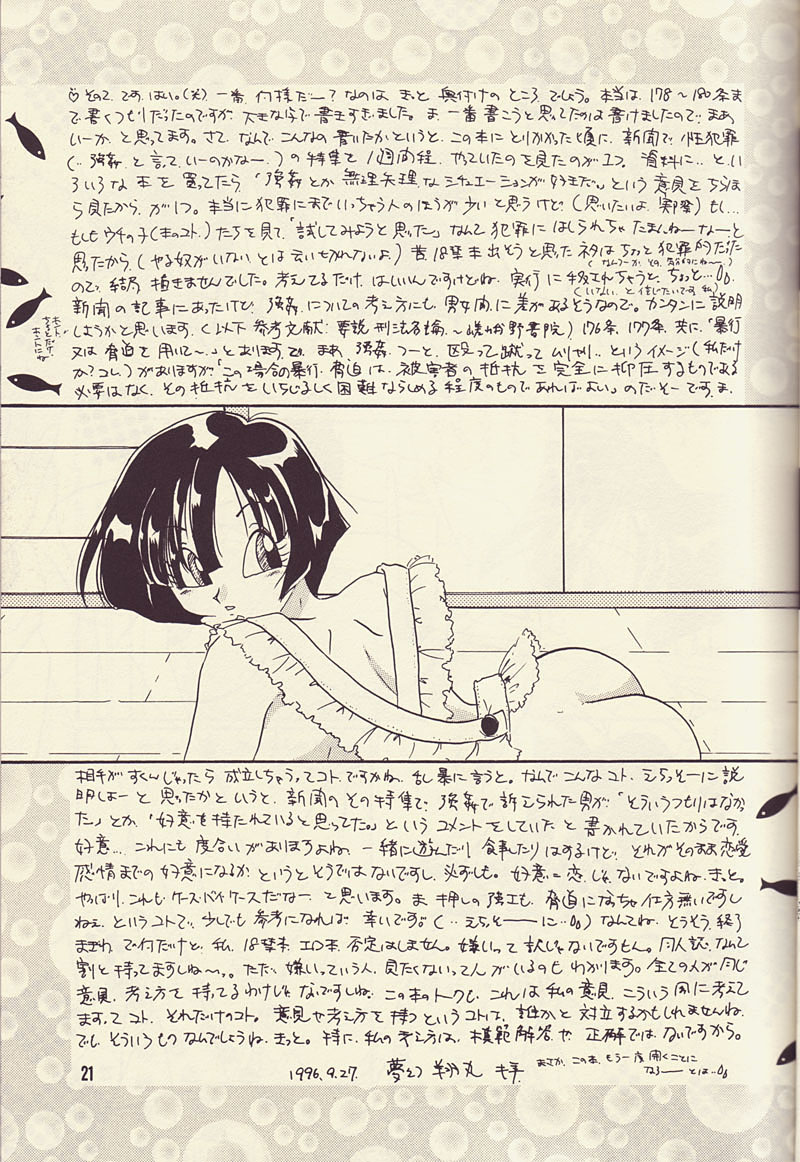 ♡その2.です.はい。(犬).一番.何様だー?なのは.きっと.奥付けのところ.でしょう。本当は.178～180条ま
で.書くつもりだったのですが.大きな字で書きすぎました。ま.一番書こうと思ってたのは書けましたので.まあ
いーか.と思ってます。さて.なんでこんなの書いたかというと.この本にとりかかった頃に.新聞で.性犯罪
(‥強姦と言って.いーのかなー.)の特集を1週間程.やっていたのを見たのが1つ.資料に‥と.い
ろいろな本を買ってたら.「強姦とか無理矢理なシチュエーションが好きだ。」という意見をちらほ
ら見たから.が1つ。本当に犯罪にまでいっちゃう人のほうが少いと思うけど.(思いたいよ.実際)もし…
もしもウチの子(本のコト.)たちを見て.「試してみようと思った」なんて犯罪にはしられちゃたまんねーなーと
思ったから.(やる奴がいないとは云いきれないよ.)昔.18禁本出そうと思ったネタは.ちょっと犯罪的だった
ので.結局.描きませんでした。考えてるだけ.はいいんですけどね.実行に移されちゃうと.ちょっと…
(いない.と信じたいです.私)
新聞の記事にあったけど.強姦.についての考え方にも.男女間に差があるそうなので。カンタンに説明
しようかと思います。(以下参考文献:要説刑法各論～嵯峨野書院)176条.177条.共に.「暴行
又は脅迫を用いて～.」とあります.が.まあ.強姦.つーと.殴って蹴ってムリヤリ‥というイメージ(私だけ
か?コレ。)がありますが「この場合の暴行.脅迫は.被害者の抵抗を完全に抑圧するものである
必要はなく.その抵抗をいちじるしく困難ならしめる程度のものであればよい」のだそーです.ま.
相手がすくんじゃったら成立しちゃうってコトですかね.乱暴に言うと。なんでこんなコト.えらっそーに説
明しよーと思ったかというと.新聞のその特集で.強姦で訴えられた男が.「そういうつもりはなか
た」とか.「好意を持たれていると思ってた。」というコメントをしていたと書かれていたからです.
好意…これにも度合いがありますよね.一緒に遊んだり.食事したりはするけど.それがそのまま恋愛
感情までの好意になるか.というとそうではないですし.必ずしも。好意=恋.じゃないですよね.きっと。
やっぱり.これもケースバイケースだなー.て思います。ま.押しの強さも.脅迫になっちゃ仕方無いですし
ねえ.というコトで.少しでも参考になれば.幸いです。(‥えらっそー――に‥)なんてね.とうそう.終了
まぎわ.で何だけど.私.18禁本.エロ本.否定はしません。嫌いって訳じゃないですもん。同人誌.なんて
割と持ってますしね～。。ただ.嫌いっていう人.見たくないってんがいるのもわかります。全ての人が同じ
意見.考え方を持ってるわけじゃないですしね.この本のトークも.これは私の意見.こういう風に考えて
ます.てコト.それだけのコト。意見や考え方を持つというコトは.誰かと対立するかもしれませんね.
でも.そういうものなんでしょうね.きっと。特に.私の考え方は.模範解答や.正解では.ないですから。
21
1996.9.27.
まさか.この本.もう一度開くことに
なるー―とは‥